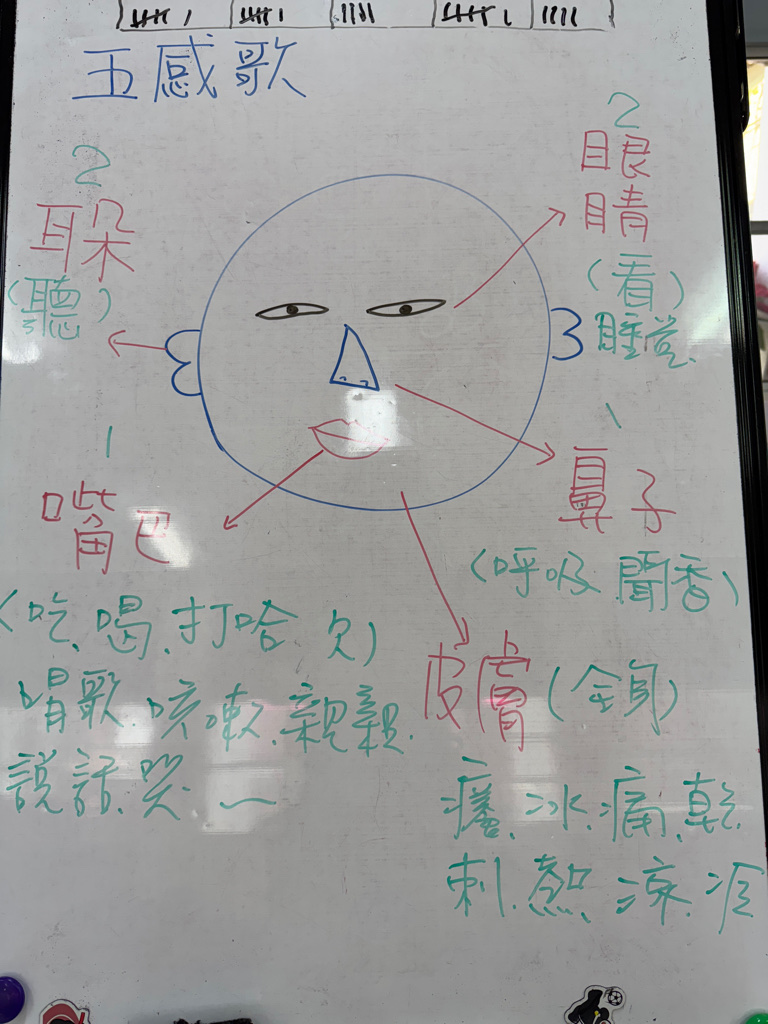 五感歌
2
耳朵
(聽)
2
眼
睛
(看)
睡覺
1
嘴巴
(吃、喝、打哈欠)
唱歌、咳嗽、親親、
說話、哭、
1
鼻子
(呼吸、聞香)
皮膚(全身)
癢、冰、痛、乾、
刺、熱、涼、